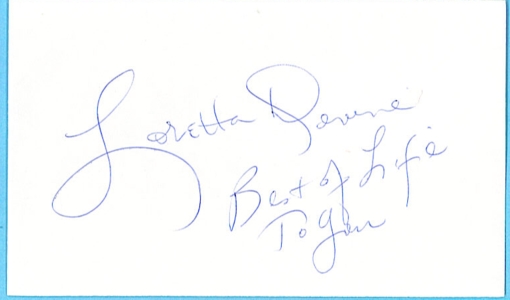 Loretta Devine
Best of Life
To You